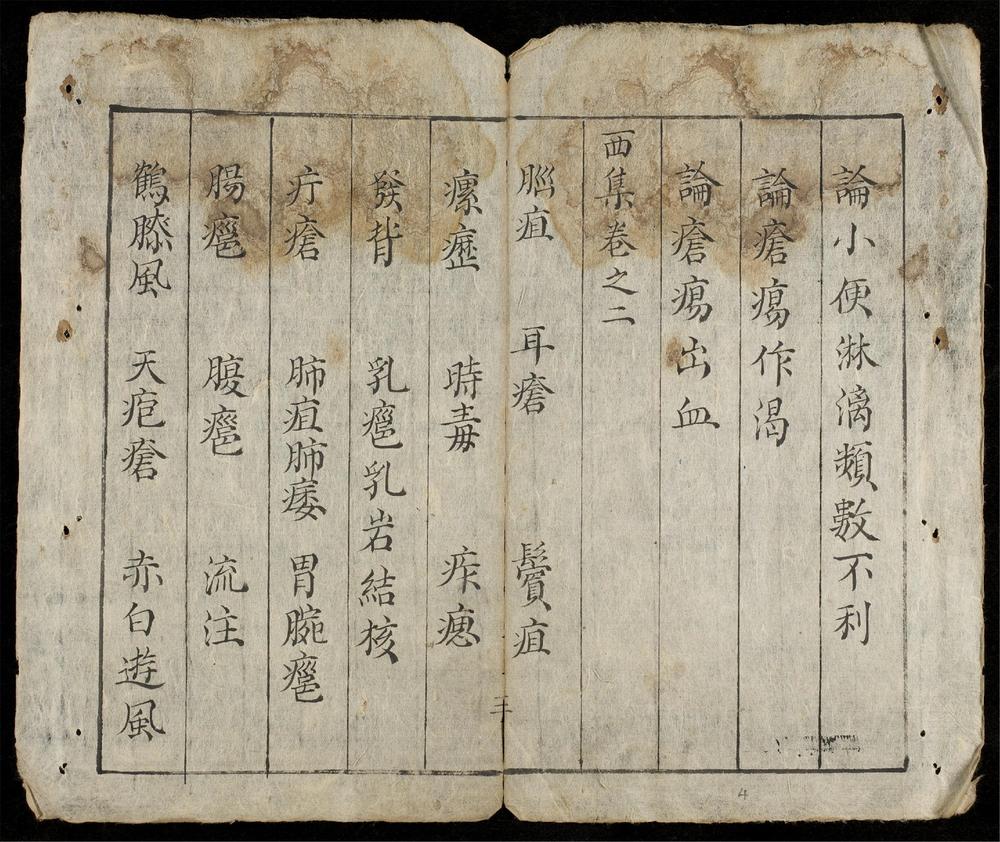 論小便淋漓頻數不利
論瘡瘍作渴
論瘡瘍出血
西集卷之二
腦疽 耳瘡 鬢疽
瘰癧 時毒
發背 乳癰乳岩結核
疔瘡 肺疽肺痿 胃腕癰
腸癰 腹癰 流注
鶴膝風 天疱瘡 赤白遊風
4